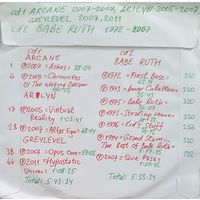 cd1 ARCANE 2007-2009, ARILYN 2005-2007
GREYLEVEL 2007, 2011
cd2 BABE RUTH 1972-2007
cd1
ARCANE
1 ℗2007 = Ashes = 58:04
6 ℗2009 = Chronicles
Of The Waking Dream
ARILYN
17 ℗2005 = Virtual
Reality = 1:03:41
28 ℗2007 = Alter Ego
GREYLEVEL
38 ℗2007 = Opus One = 54:02
44 ℗2011 = Hypostatic
Union = 1:08:25
Total: 5:43:34
cd2
BABE RUTH
℗1972 = First Base = 320
℗1973 = Amar Caballero = 320
℗1975 = Babe Ruth = 320
℗1975 = Stealing Home = 320
℗1976 = Kid's Stuff 256
Grand Slam =
The Best of Babe Ruth = 320
℗2007 = Que Pasa = 192
Total: 5:33:21